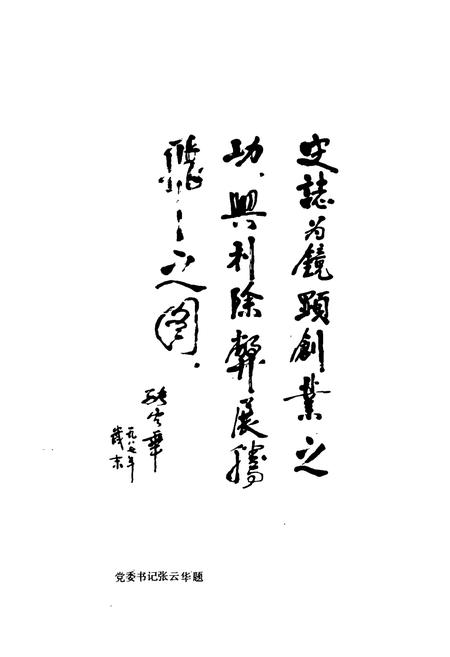 史誌为鏡顕創業之
功，興利除弊展騰
飛之图。
張云華
一九八七年
歲末
党委书记张云华题